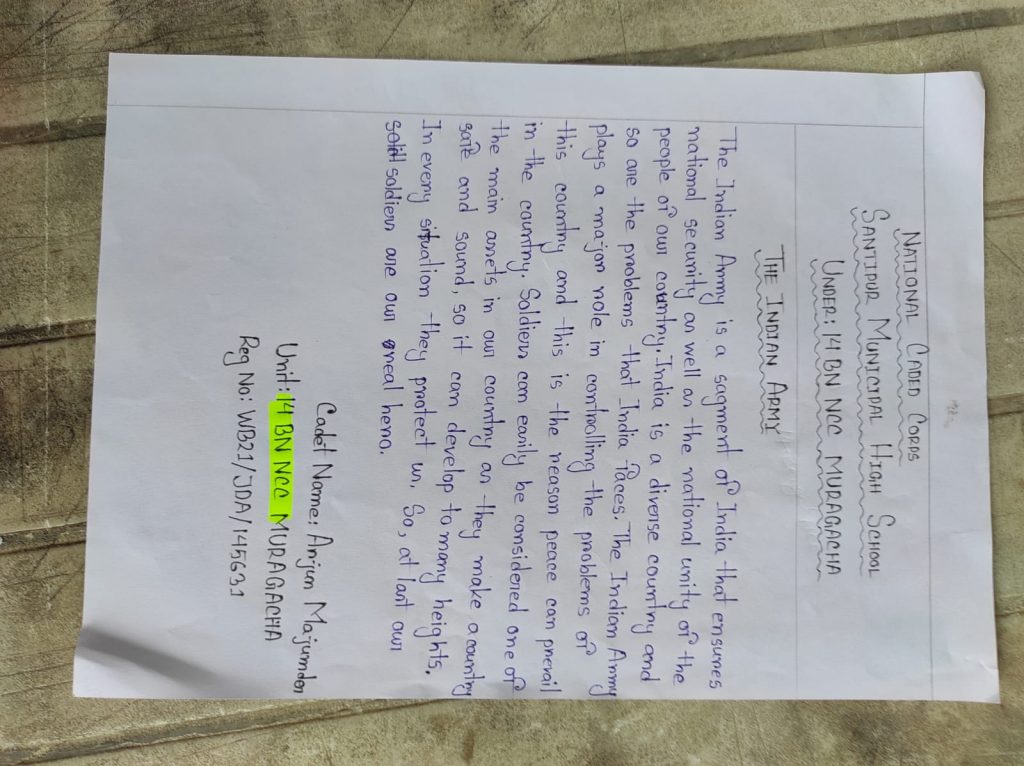 NATIONAL CADED CORPS
SANTIPUR MUNICIPAL HIGH SCHOOL
UNDER: 14 BN NCC MURAGACHA
THE INDIAN ARMY
The Indian Army is a sagment of India that ensures
national security as well as the national unity of the
people of our country. India is a diverse country and
so are the problems that India faces. The Indian Army
plays a major role in controlling the problems of
this country and this is the reason peace can prevail
in the country. Soldiers can easily be considered one of
the main assets in our country as they make a country
safe and sound, so it can develop to many heights.
In every situation they protect us. So, at last our
soldiers are our real hero.
Cadet Name: Anjum Majumder
Unit: 14 BN NCC MURAGACHA
Reg No: WB21/JDA/145631